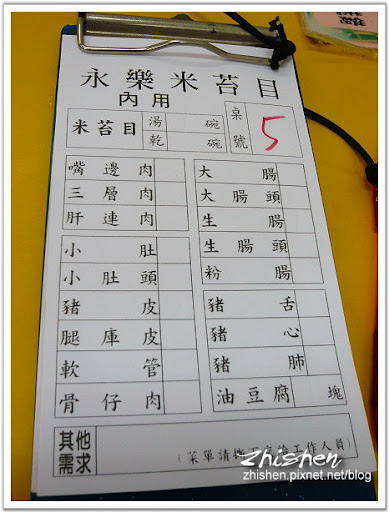 永樂米苔目
內用
米苔目 湯 碗
乾 碗
桌號 5
嘴邊肉
三層肉
肝連肉
小肚
小肚頭
豬皮
腿庫皮
軟管
骨仔肉
大腸
大腸頭
生腸
生腸頭
粉腸
豬舌
豬心
豬肺
油豆腐 塊
其他
需求
(菜單請 工作人員)
Zhishen
zhishen.pixnet.net/blog